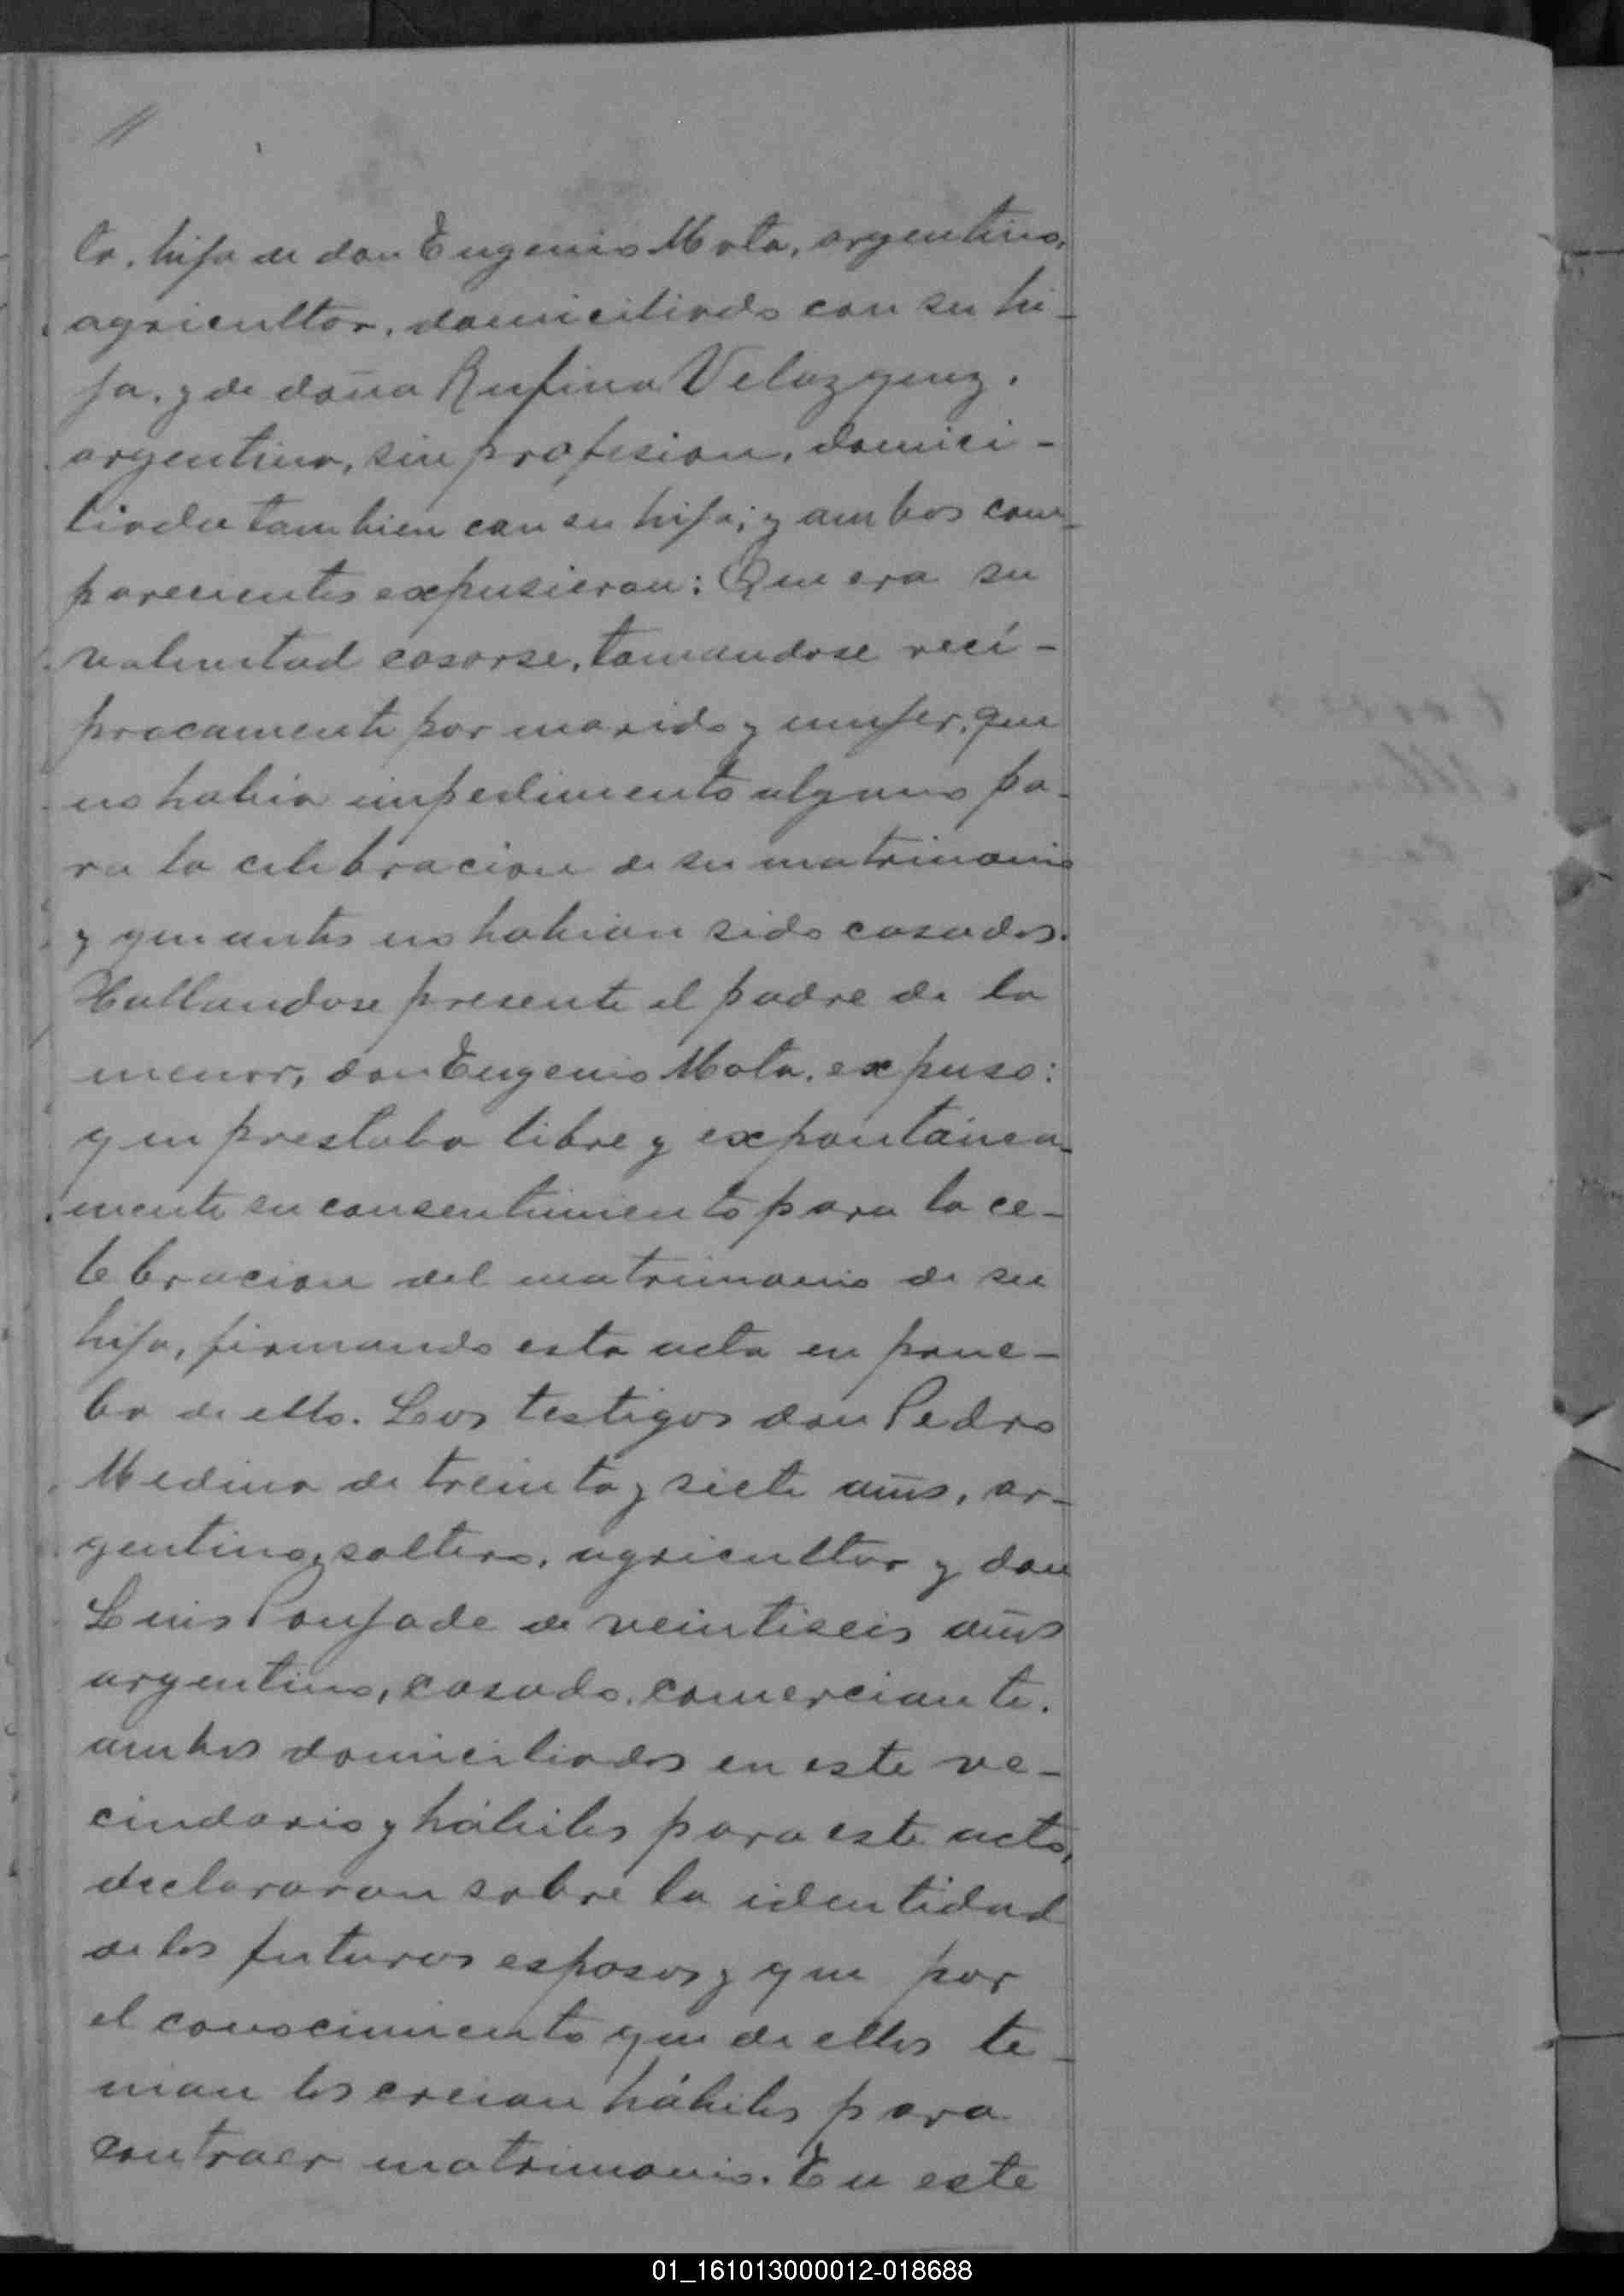 ta, hija de don Eugenio Mota, argentino,
agricultor, domiciliado con su hi-
ja, y de doña Rufina Velazquez,
argentina, sin profesion, domici-
liada tambien con su hija; y ambos com-
parecientes expusieron: Que era su
voluntad casarse, tomandose recí-
procamente por marido y mujer, que
no habia impedimento alguno pa-
ra la celebracion de su matrimonio
y que antes no habian sido casados.
Hallandose presente el padre de la
menor, don Eugenio Mota, expuso:
que prestaba libre y expontánea-
mente su consentimiento para la ce-
lebracion del matrimonio de su
hija, firmando esta acta en prue-
ba de ello. Los testigos don Pedro
Medina de treinta y siete años, ar-
gentino, soltero, agricultor y don
Luis Poujade de veintiseis años
argentino, casado, comerciante,
ambos domiciliados en este ve-
cindario y hábiles para este acto,
declararon sobre la identidad
de los futuros esposos y que por
el conocimiento que de ellos te-
nian los creian hábiles para
contraer matrimonio. En este
01_161013000012-018688